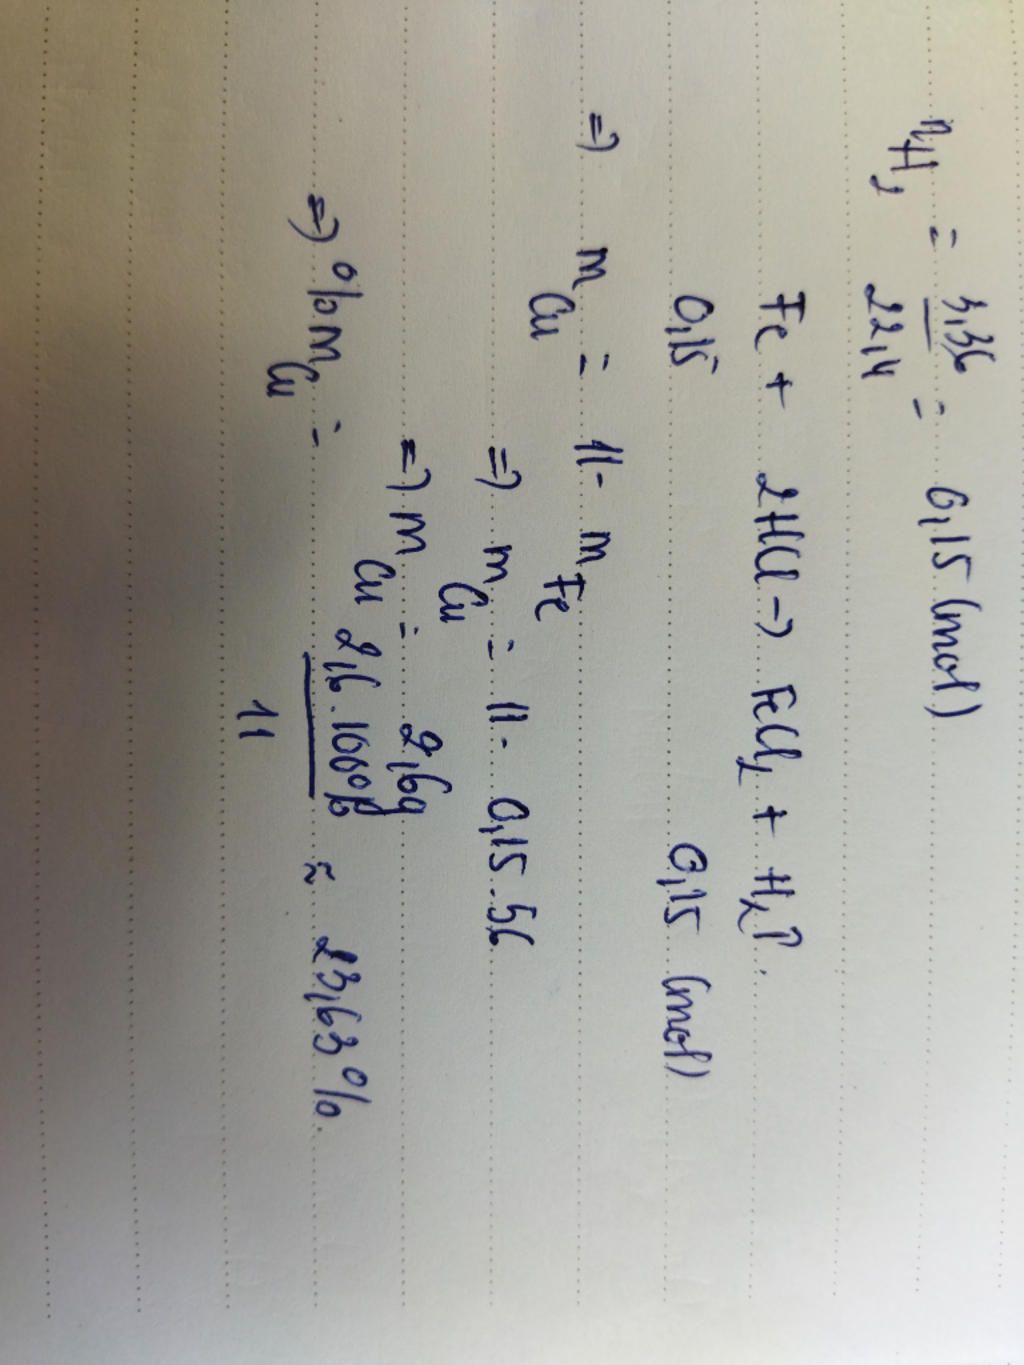 nH₂ = 3,36/22,4 = 0,15 (mol)
Fe + 2HCl → FeCl₂ + H₂↑.
0,15 0,15 (mol)
=> mCu = 11 - mFe
=> mCu = 11 - 0,15.56
=> mCu = 2,6g
=> %mCu = 2,6.100%/11 ≈ 23,63%.